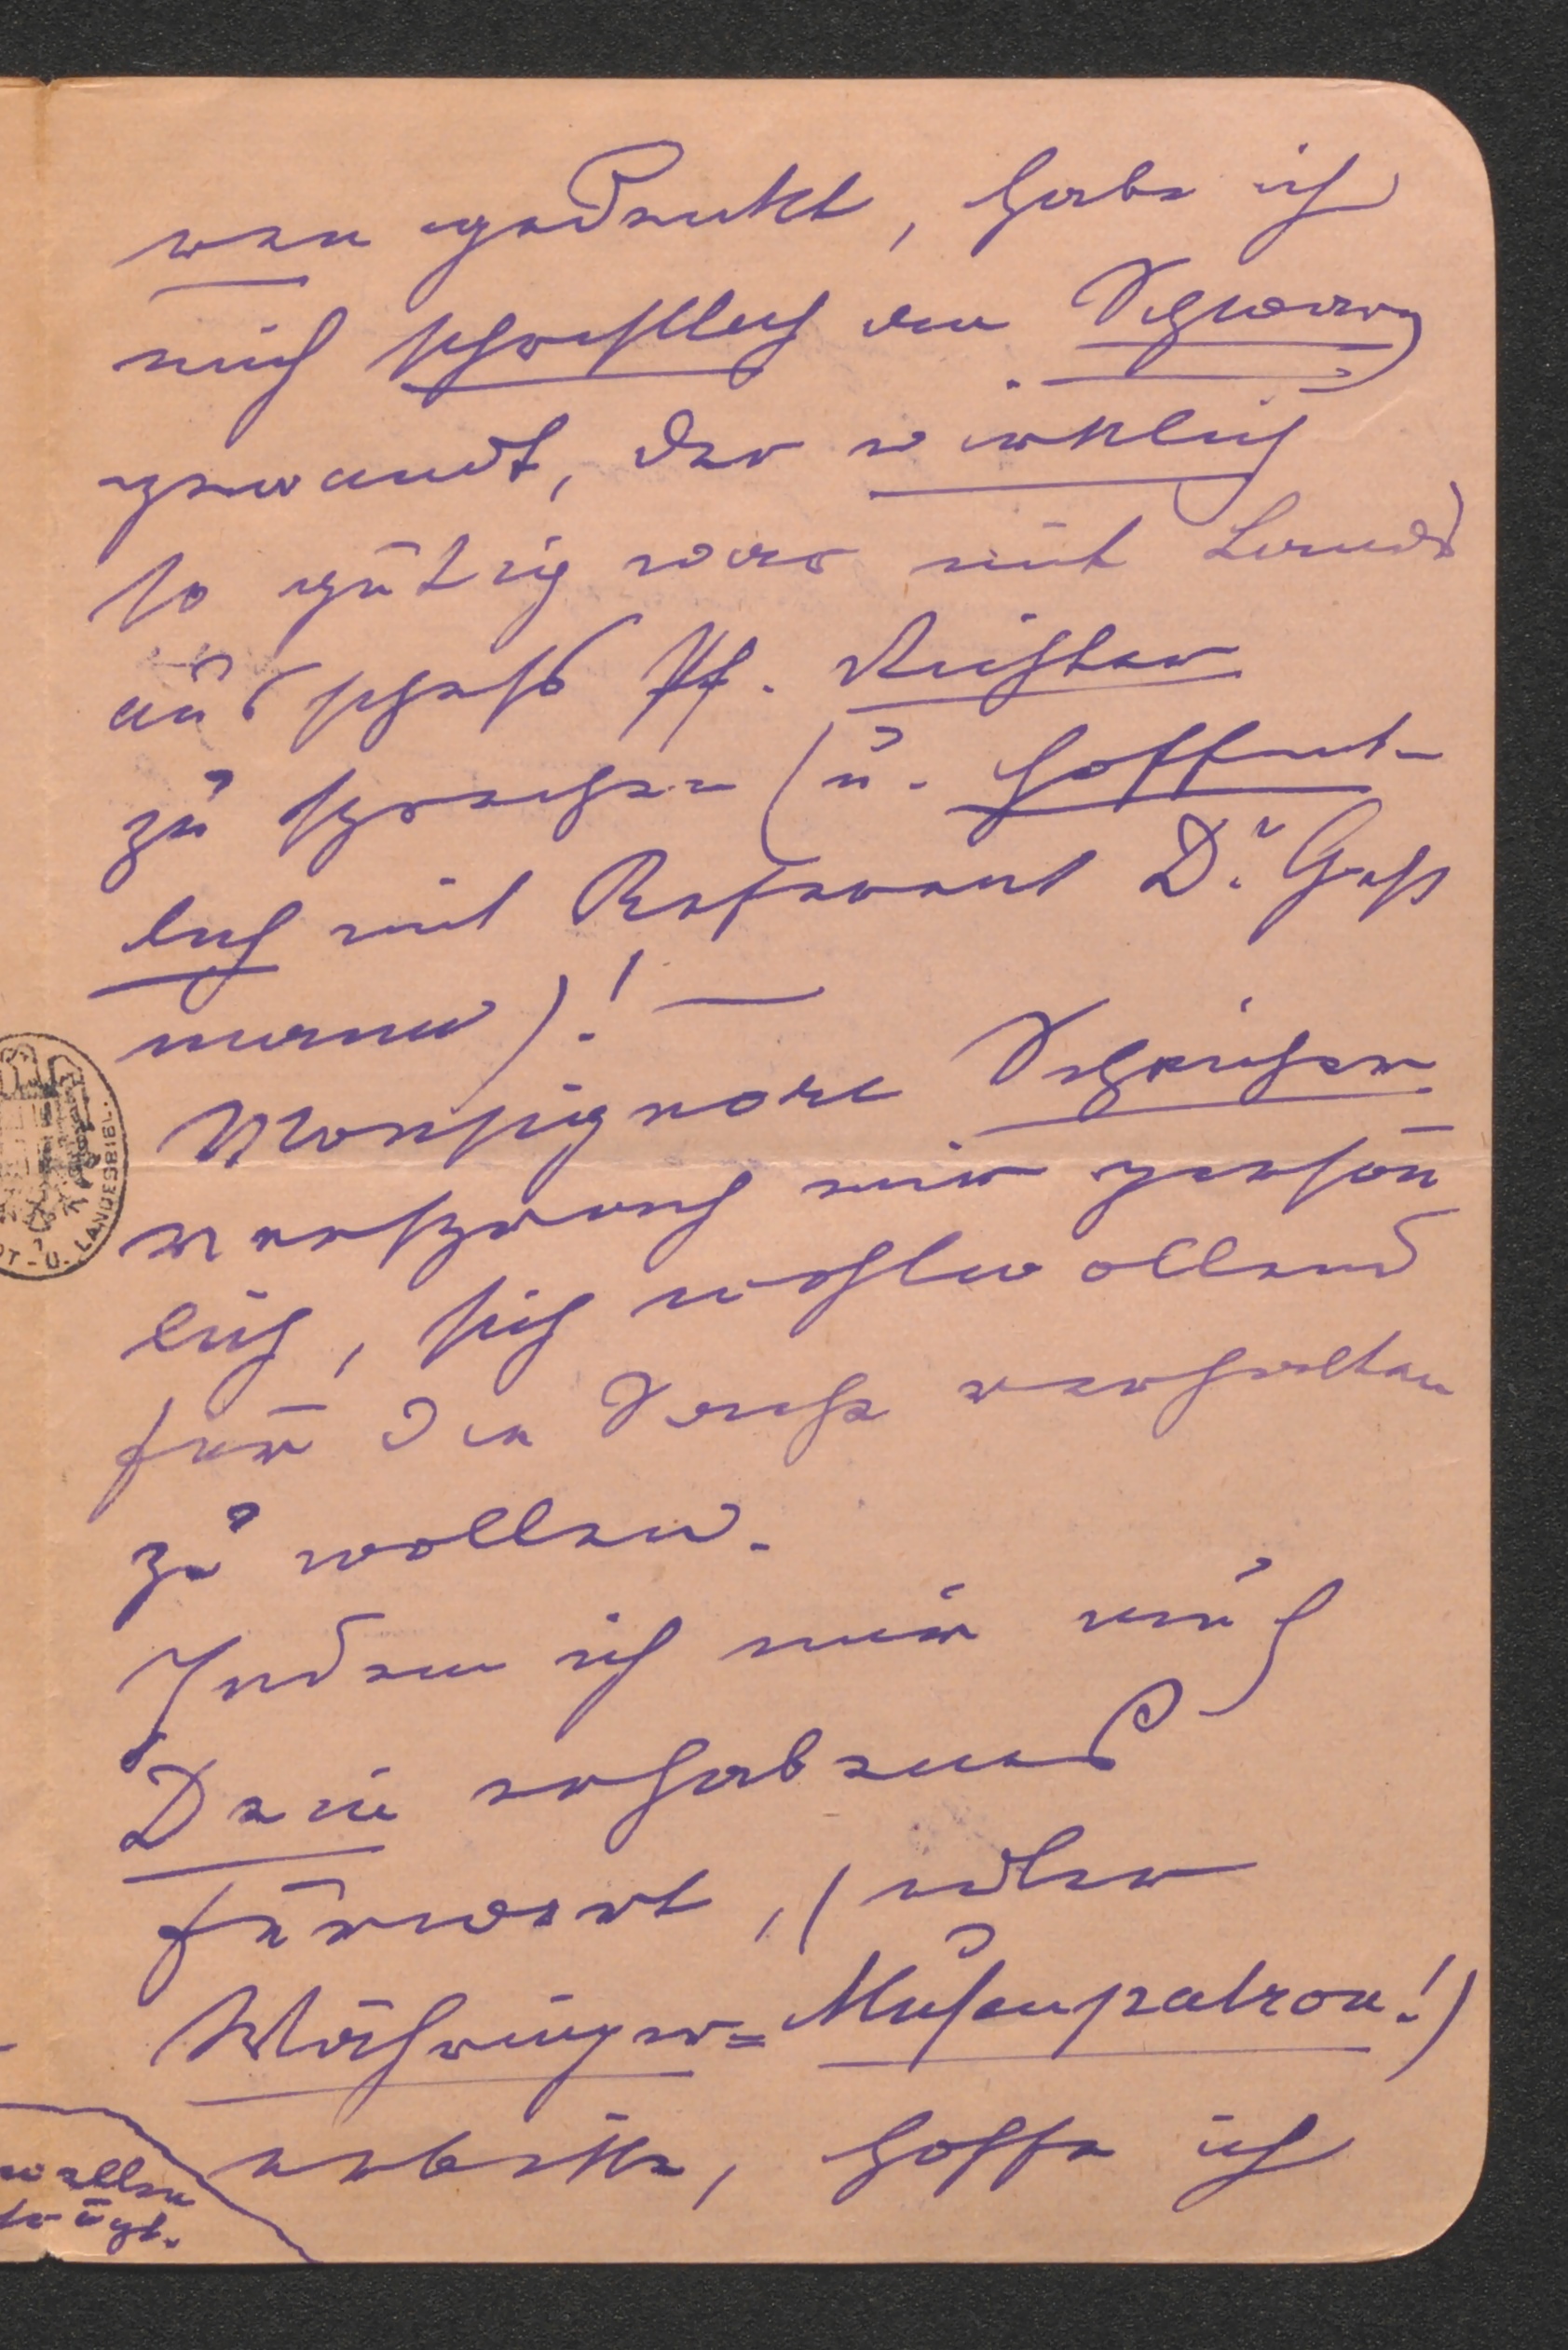 wen gedrukt, habe ich
mich schriftlich an Schwarz
gewandt, der wirklich
so gütig war mit Landes
ausschuß Pf. Richter
zu sprechen (u. hoffent-
lich mit Referent Dr. Geß
mann)! —
Monsignore Scheicher
versprach mir persön
lich, sich wohlwollend
für die Sache verhalten
zu wollen.
Indem ich mir auch
Dein erhabenes
Fürwort, (edler
Währinger=Musenpatron!)
erbitte, hoffe ich
T-U. LANDESBIBL.